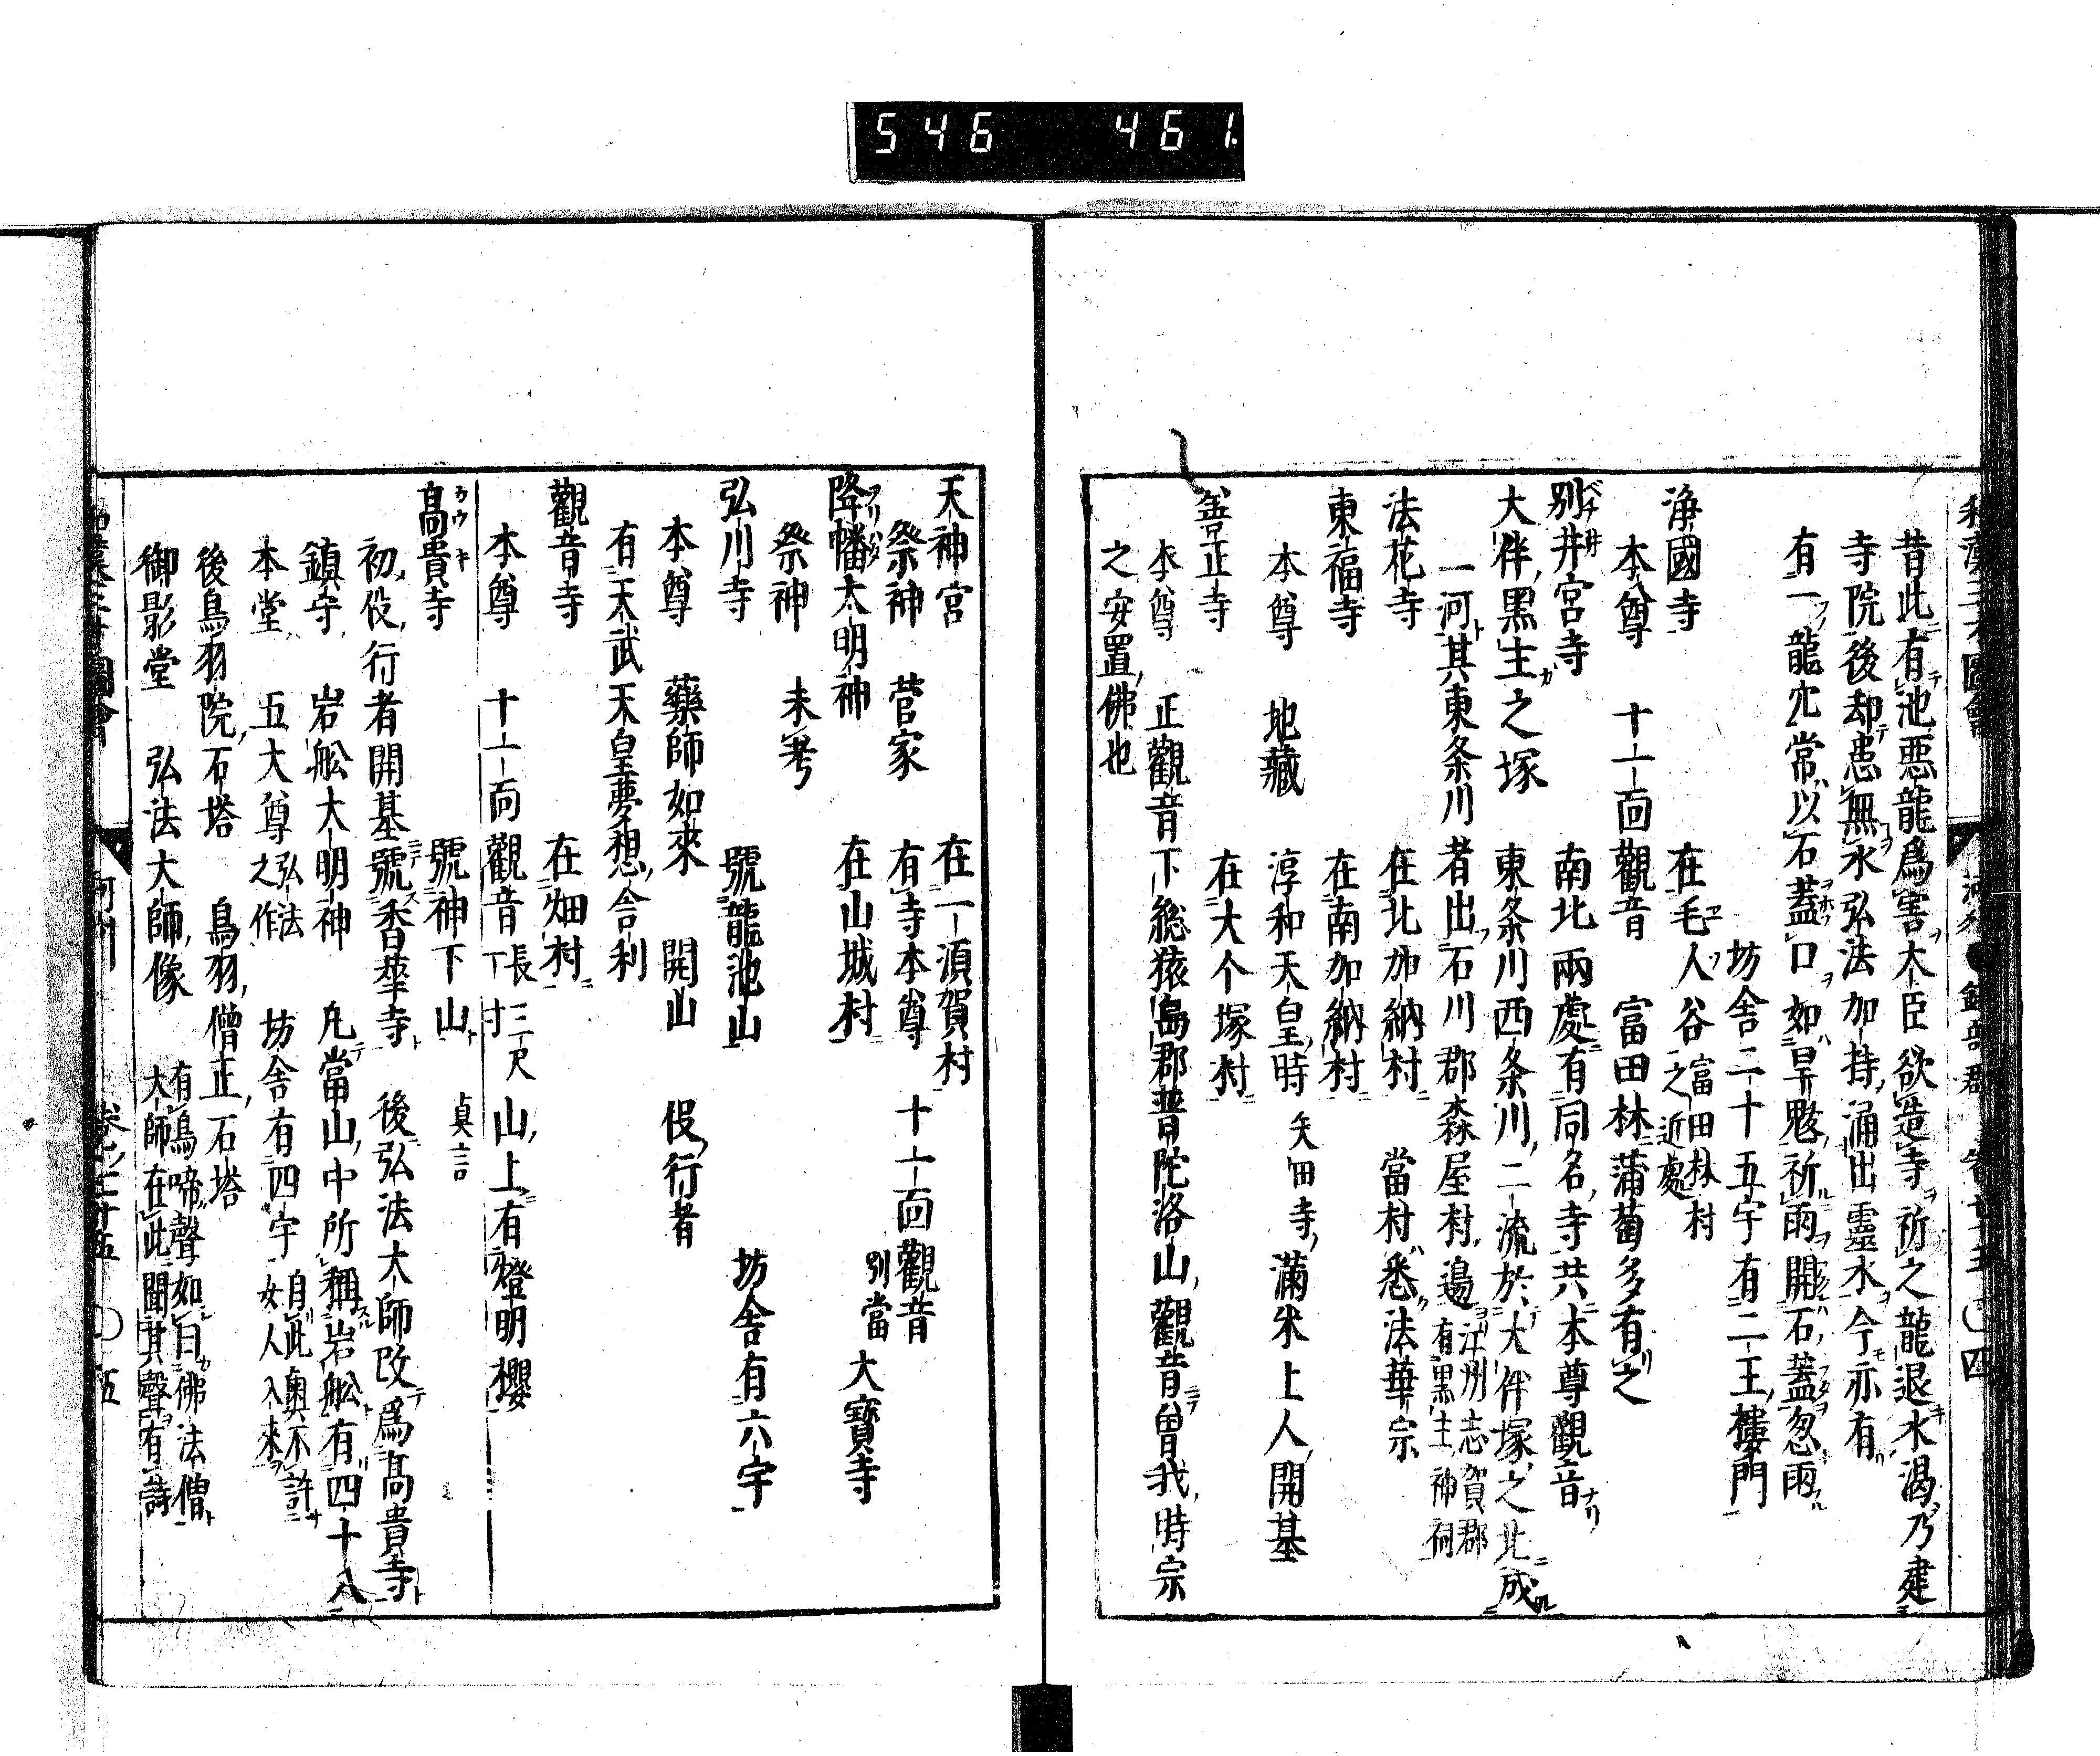 546 461
昔此有池惡龍爲害大臣欲造寺祈之龍退水渇乃建
寺院後却患無水弘法加持涌出靈水今亦有
有一龍穴常以石蓋口如旱魃祈雨開石蓋忽雨
坊舍二十五宇有二王樓門
浄國寺 在毛人谷 富田林村之近處
本尊 十一面觀音 富田林蒲萄多有之
別井宮寺 南北兩處有同名寺共本尊觀音
大伴黒主之塚 東条川西条川二流於大伴塚之北成
一河其東条川者出石川郡森屋村邉 江州志賀郡有黒主神祠
法花寺 在北加納村 當村悉法華宗
東福寺 在南加納村
本尊 地藏 淳和天皇時 矢田寺滿米上人開基
善正寺 在大个塚村
本尊 正觀音下総猿島郡普陀洛山觀音曽我時宗
之安置佛也
天神宮 在一須賀村
祭神 菅家 有寺本尊 十一面觀音
降幡大明神 在山城村 別當 大寶寺
祭神 未考
弘川寺 號龍池山 坊舍有六宇
本尊 藥師如來 開山 役行者
有天武天皇夢想舎利
觀音寺 在畑村
本尊 十一面觀音 長三尺 山上有燈明櫻
髙貴寺 號神下山 真言
初役行者開基號香華寺 後弘法大師改爲髙貴寺
鎮守 岩舩大明神 凡當山中所稱岩舩有四十八
本堂 五大尊 弘法之作 坊舍有四宇 自此奥不許女人入來
後鳥羽院石塔 鳥羽僧正石塔
御影堂 弘法大師像 有鳥啼聲如曰佛法僧大師在此聞其聲有詩